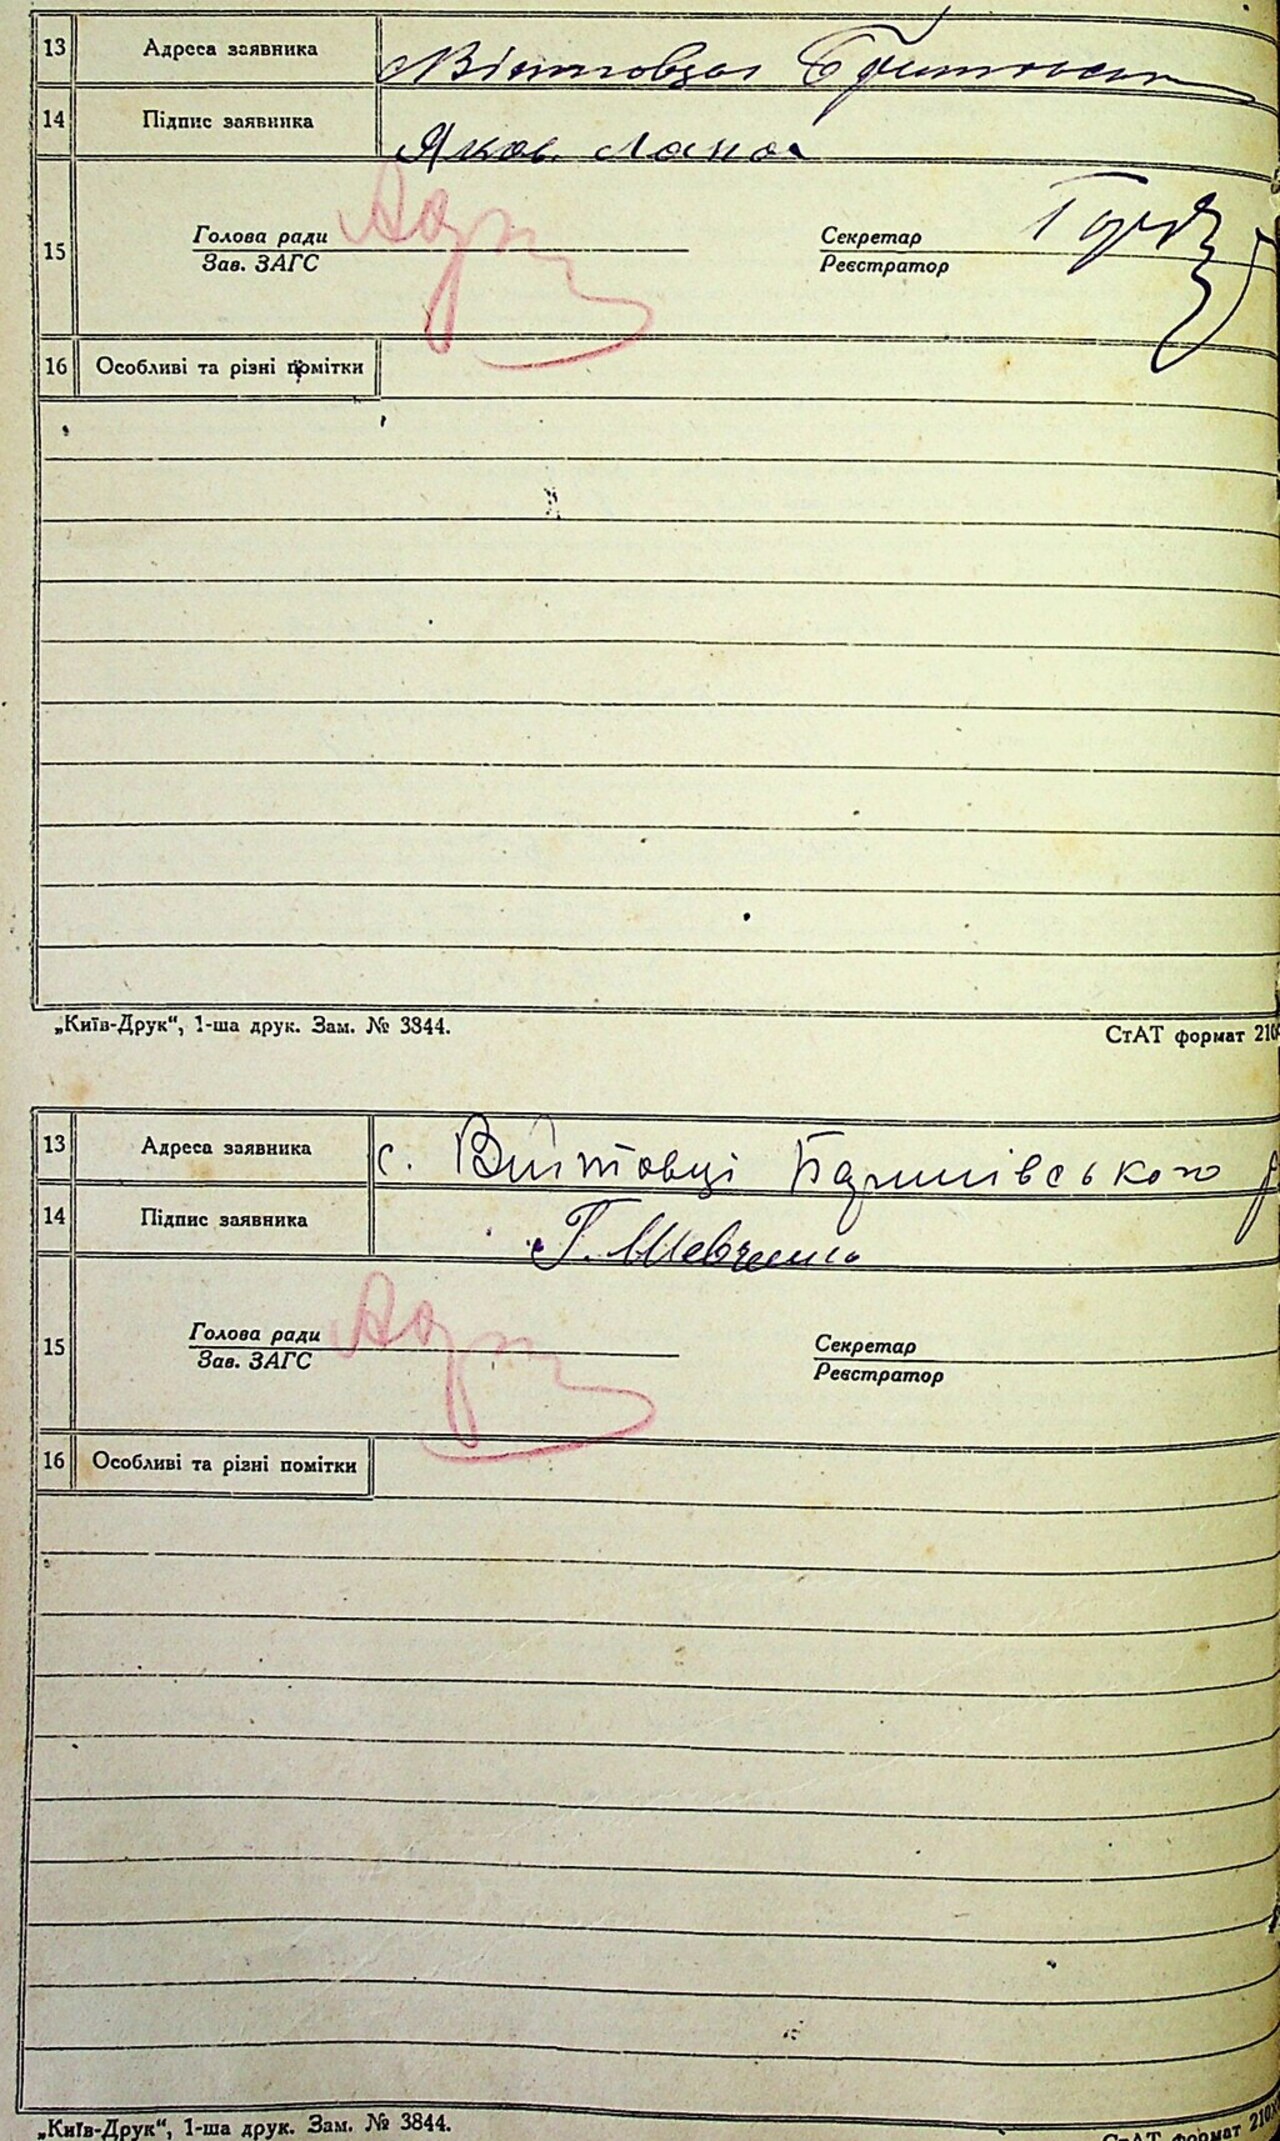 13 Адреса заявника
14 Підпис заявника Яков
15 Голова ради Секретар
Зав. ЗАГС Реєстратор
16 Особливі та різні помітки
„Київ-Друк“, 1-ша друк. Зам. № 3844. СтАТ формат 210
13 Адреса заявника с. Війтовці
14 Підпис заявника Г. Шевченко
15 Голова ради Секретар
Зав. ЗАГС Реєстратор
16 Особливі та різні помітки
„Київ-Друк“, 1-ша друк. Зам. № 3844. СтАТ формат 210